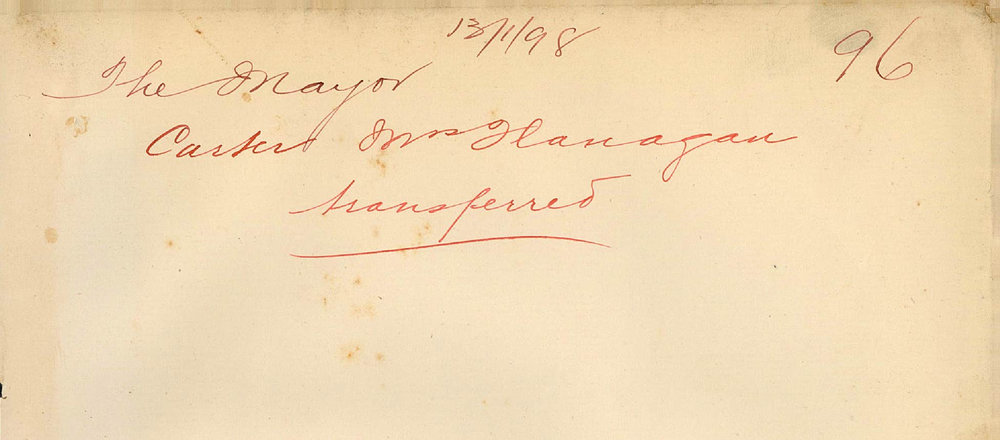 13/1/98
96
The Mayor
Carter Mrs Flanagan
transferred